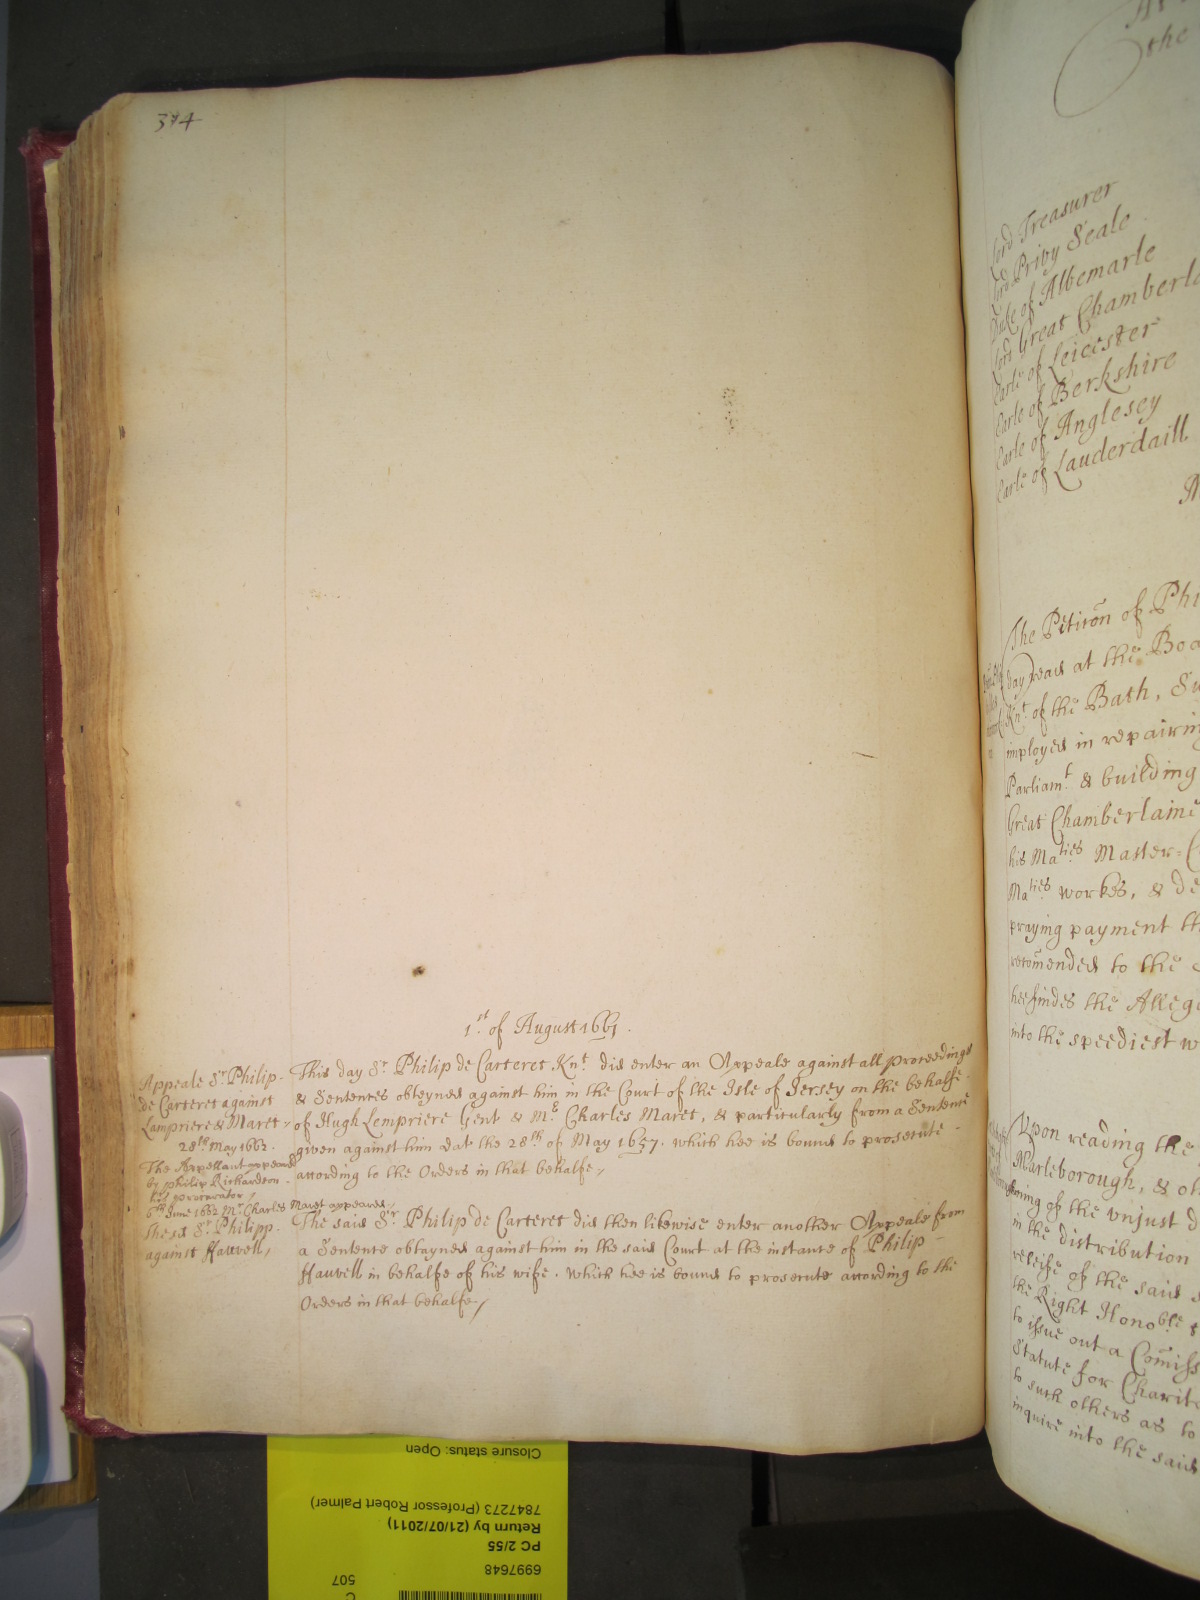 374
1.st of August 1661.
Appeale Sr. Philip
de Carteret against
Lampriere & Maret
28th May 1662.
The Appellant appeared
by Philip Richardson
his procurator /
6th June 1662 Mr. Charles Maret appeares /
The sd Sr. Philipp
against Hawell,
This day Sr. Philip de Carteret Knt. did enter an Appeale against all proceedings
& Sentences obteyned against him in the Court of the Isle of Jersey on the behalfe
of Hugh Lempriere Gent & Mr. Charles Maret, & particularly from a Sentence
given against him dat the 28th of May 1657. which hee is bound to prosecute -
according to the Orders in that behalfe /
The said Sr. Philip de Carteret did then likewise enter another Appeale from
a Sentence obtayned against him in the said Court at the instance of Philip -
Hauvell in behalfe of his wife. which hee is bound to prosecute according to the
Orders in that behalfe /
the
Lord Treasurer
Lord Privy Seale
Duke of Albemarle
Lord Great Chamberla
Earle of Leicester
Earle of Berkshire
Earle of Anglesey
Earle of Lauderdaill
The Petition of Phi
day read at the Boa
Knt. of the Bath, Su
imployed in repairing
Parliamt. & building
Great Chamberlaine
his Maties Master-C
Maties workes, & de
praying payment th
recomended to the
hee findes the Allega
into the speediest w
Upon reading the
Marleborough, & oth
ning of the unjust d
in the distribution
releife of the said
the Right Honoble
to issue out a Comiss
Statute for Charita
to such others as to
inquire into the said
Closure status: Open
7847273 (Professor Robert Palmer)
Return by (21/07/2011)
PC 2/55
6997648
C
507